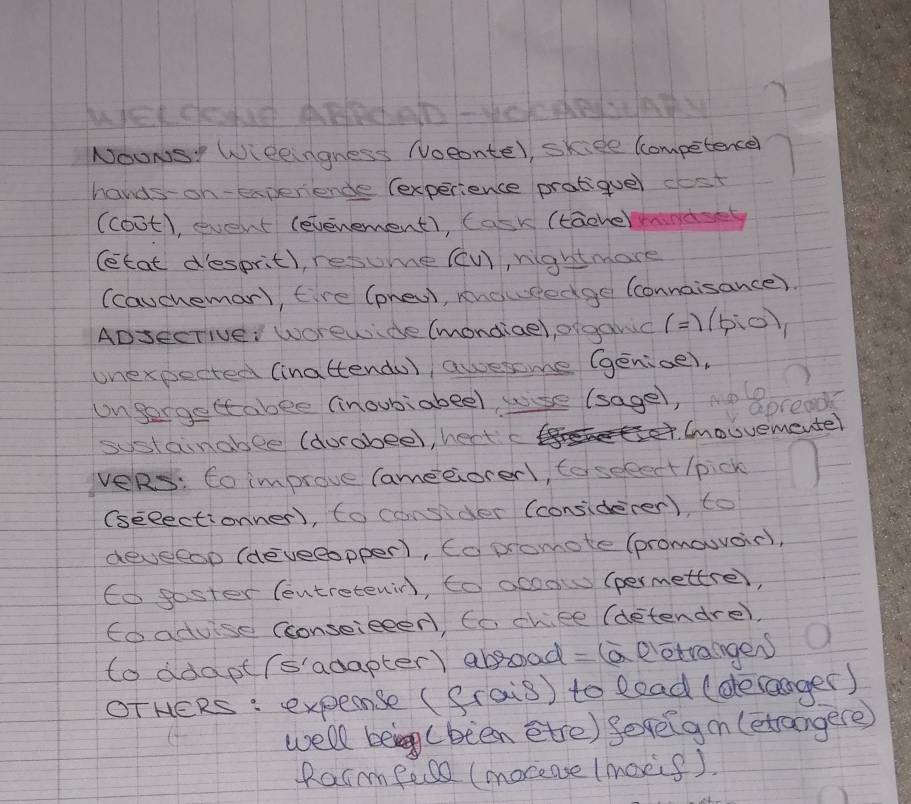 WELCOME ABROAD - VOCABULARY
NOUNS: Willingness (volonté), skill (compétence)
hands-on-experiende (expérience pratique) cost
(coût), event (événement), task (tâche) mindset
(état d'esprit), resume (CV), nightmare
(cauchemar), tire (pneu), knowledge (connaisance).
ADJECTIVE: worlwide (mondiale), organic (=) (bio),
unexpected (inattendu), awesome (génial),
unforgettable (inoubiable), wise (sage),
sustainable (durable), hectic (mouvementé)
VERS: to improve (améliorer), to select/pick
(sélectionner), to consider (considérer), to
develop (développer), to promote (promouvoir),
to foster (entretenir), to allow (permettre),
to advise (conseiller), to chill (détendre).
to adapt (s'adapter) abroad = (à l'étranger)
OTHERS: expense (frais) to lead
well being (bien être) foreign (étrangère)
harmfull